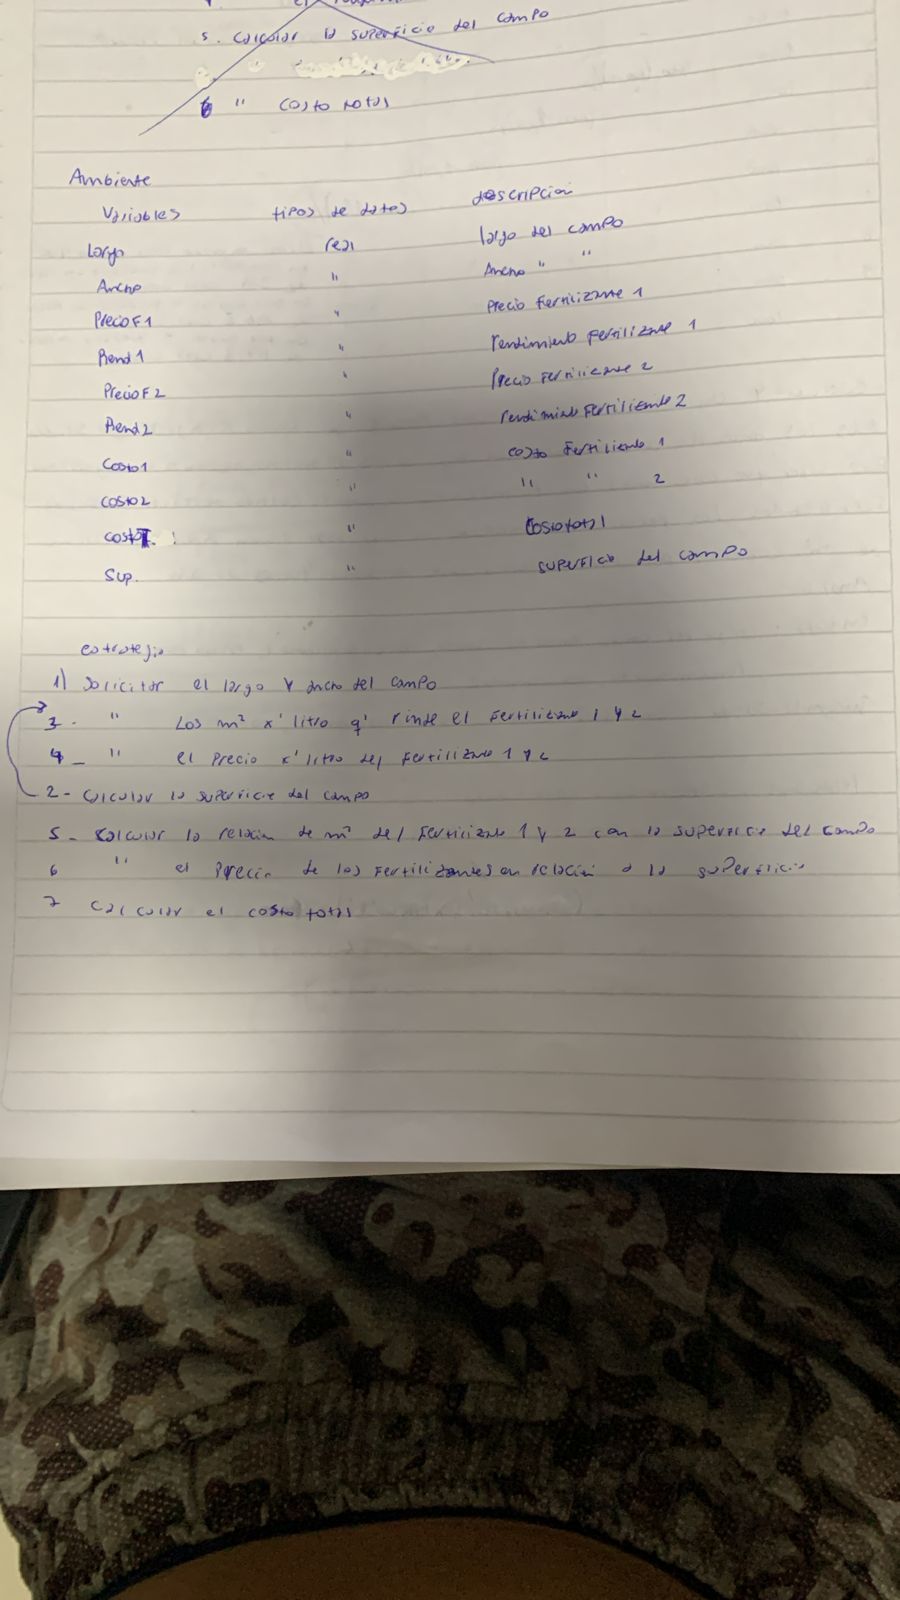 el
5. Calcular la superficie del campo
6 " Costo total
Ambiente
Variables tipos de datos descripcion
Largo real largo del campo
Ancho " Ancho " "
PrecioF1 " Precio Fertilizante 1
Rend1 " rendimiento Fertilizante 1
PrecioF2 " Precio Fertilizante 2
Rend2 " rendimiento Fertilizante 2
Costo1 " costo Fertilizante 1
costo2 " " " 2
costoT. " Costo total
Sup. " superficie del campo
estrategia
1) Solicitar el largo y ancho del campo
3- " Los m² x' litro q' rinde el Fertilizante 1 y 2
4- " el precio x' litro del Fertilizante 1 y 2
2- Calcular la superficie del campo
5- Calcular la relacion de m² del Fertilizante 1 y 2 con la superficie del campo
6 " el Precio de los Fertilizantes en relación a la superficie
7 Calcular el costo total